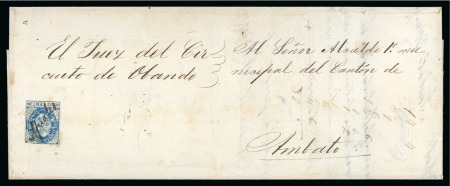 El Juez del Cir-
cuito de Obando
Al Señor Alcalde 1º mu-
nicipal del Cantón de
Ambato